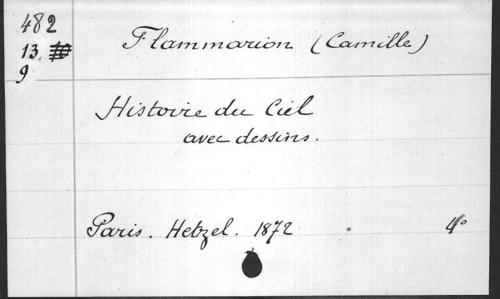 482
Flammarion (Camille)
13.
9
Histoire du Ciel
avec dessins.
Paris. Hetzel. 1872
4º